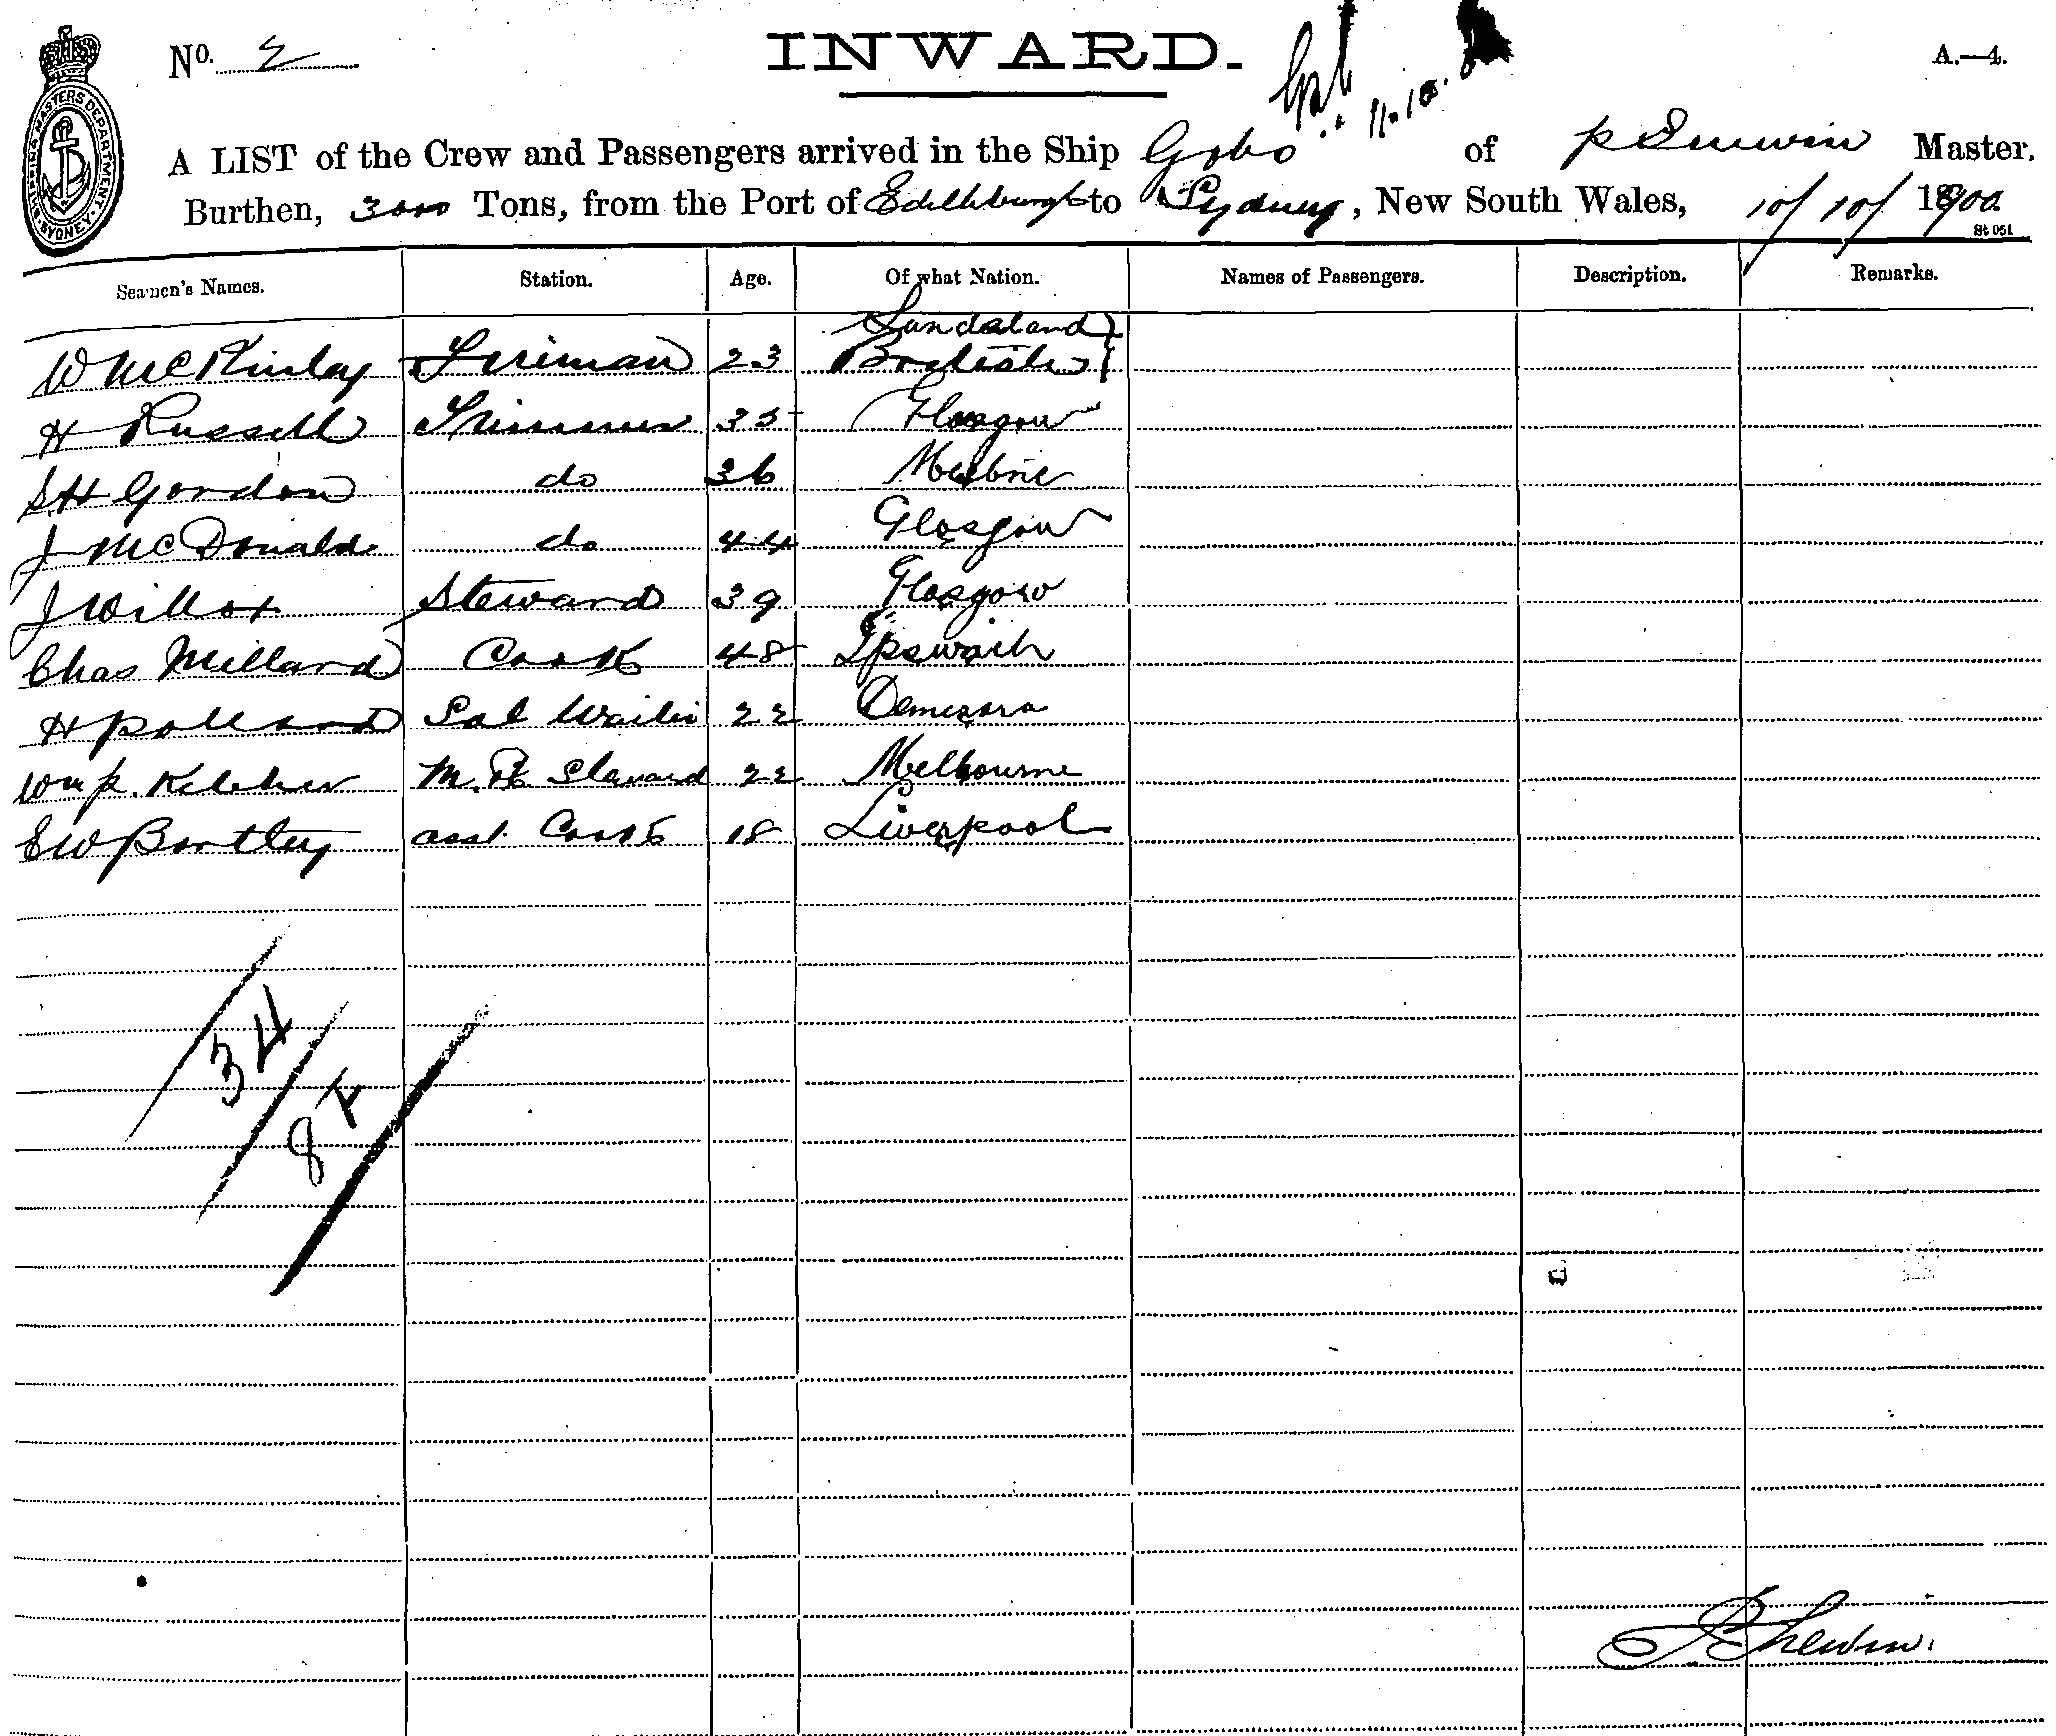 No. 2
INWARD.
A.—4.
11.10.
A LIST of the Crew and Passengers arrived in the Ship Gabo of P Shewin Master.
Burthen, 3000 Tons, from the Port of Edithburgh to Sydney, New South Wales, 10/10/1900
St 051
Seamen's Names. Station. Age. Of what Nation. Names of Passengers. Description. Remarks.
Sunderland
W McKinlay Fireman 23 British
H Russell Trimmer 35 Glasgow
S.H Gordon do 36 Melbne
J McDonald do 44 Glasgow
J Willox Steward 39 Glasgow
Chas Millard Cook 48 Ipswich
H Pollard Sal Waiter 22 Demerara
Wm P. Kelcher M. R. Steward 22 Melbourne
E W Bartley asst. Cook 18 Liverpool
34
87
P Shewin.